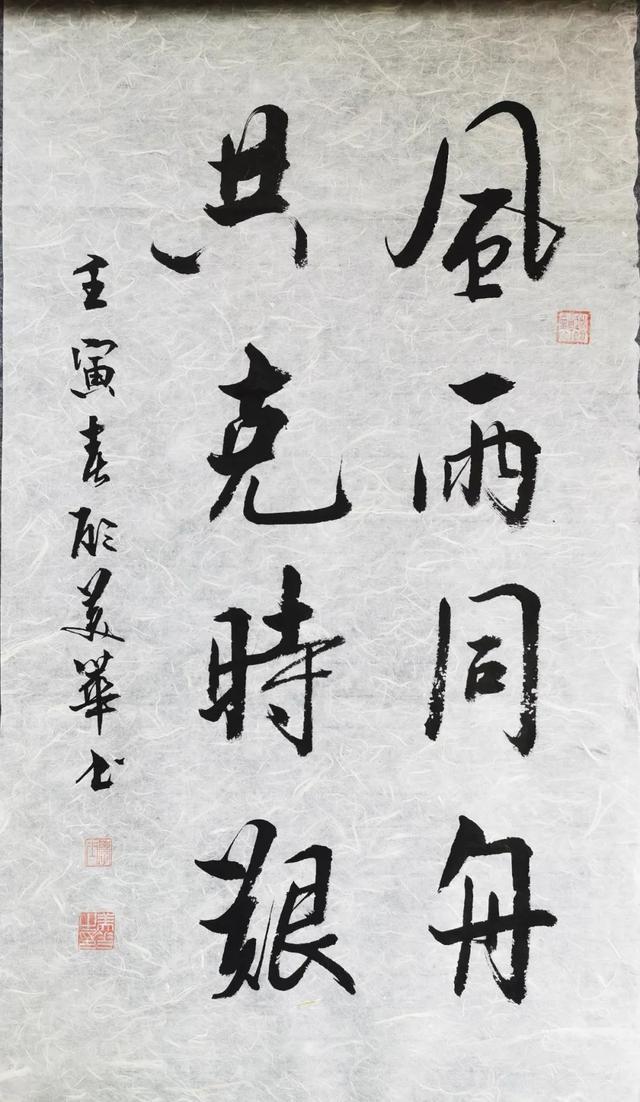 風雨同舟
共克時艱
壬寅春顾美華书